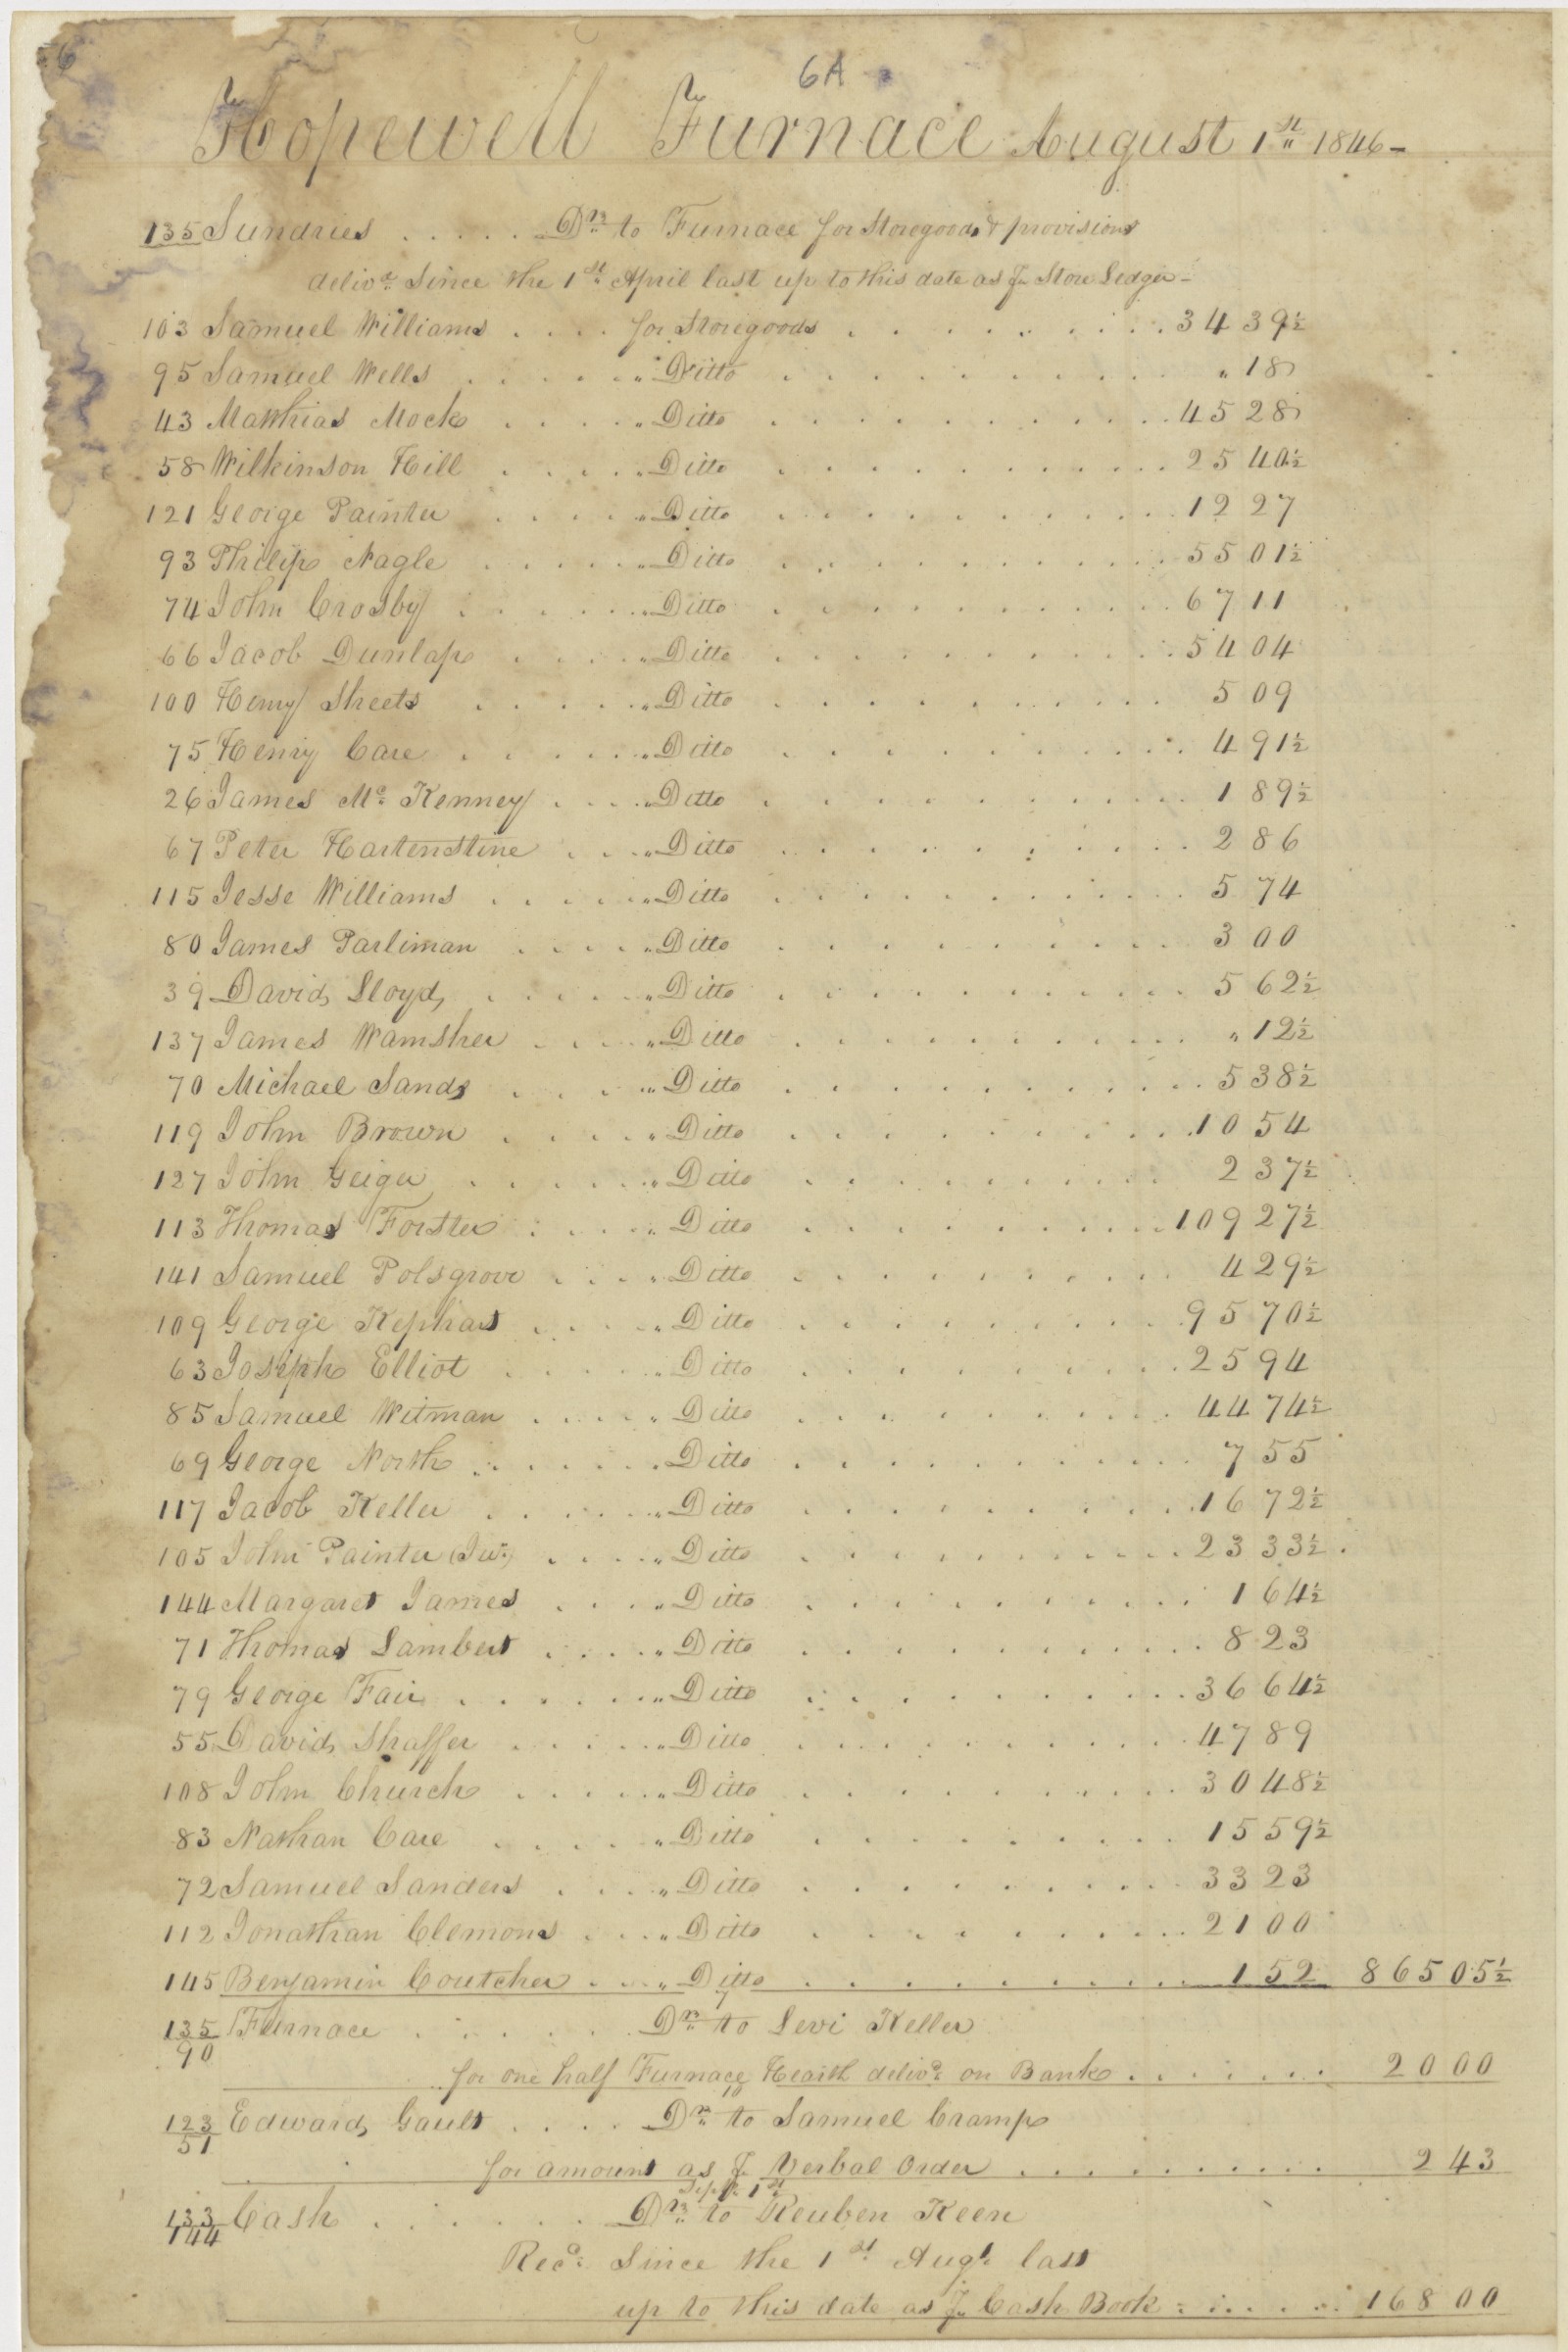 56
6A
Hopewell Furnace August 1st 1846-
135 Sundries ..... Drs to Furnace for Storegoods & provisions
delivd Since the 1st April last up to this date as pr Store Ledger -
103 Samuel Williams .... for Storegoods ......... 34 39½
95 Samuel Wells ...... " Ditto .......... " 18
43 Matthias Mock ..... " Ditto .......... 45 28
58 Wilkinson Hill ..... " Ditto .......... 25 40½
121 George Painter ..... " Ditto .......... 12 27
93 Philip Nagle ...... " Ditto .......... 55 01½
74 John Crosby ...... " Ditto .......... 67 11
66 Jacob Dunlap ..... " Ditto .......... 54 04
100 Henry Sheets ..... " Ditto .......... 5 09
75 Henry Care ...... " Ditto .......... 4 91½
26 James Mc Kenney .... " Ditto .......... 1 89½
67 Peter Hartenstine .... " Ditto .......... 2 86
115 Jesse Williams ..... " Ditto .......... 5 74
80 James Parliman ..... " Ditto .......... 3 00
39 David Lloyd ..... " Ditto .......... 5 62½
137 James Wamsher .... " Ditto .......... " 12½
70 Michael Sands .... " Ditto .......... 5 38½
119 John Brown ..... " Ditto .......... 10 54
127 John Geiger ..... " Ditto ......... 2 37½
113 Thomas Forster .... " Ditto ......... 109 27½
141 Samuel Polsgrove .... " Ditto ......... 4 29½
109 George Kephart .... " Ditto .......... 95 70½
63 Joseph Elliot ..... " Ditto .......... 25 94
85 Samuel Witman .... " Ditto ......... 44 74½
69 George North ...... Ditto .......... 7 55
117 Jacob Keller ..... " Ditto .......... 16 72½
105 John Painter (Jur) .... " Ditto .......... 23 33½
144 Margaret James .... " Ditto .......... 1 64½
71 Thomas Lambert .... " Ditto .......... 8 23
79 George Fair ...... " Ditto .......... 36 64½
55 David Shaffer ..... " Ditto .......... 47 89
108 John Church ..... " Ditto ......... 30 48½
83 Nathan Care .... " Ditto ......... 15 59½
72 Samuel Sanders .... " Ditto .......... 33 23
112 Jonathan Clemons .... " Ditto ......... 21 00
145 Benjamin Coutcher .... " Ditto .......... 1 52 865 05½
7
135 Furnace ...... Dr to Levi Keller
90
for one half Furnace Hearth delivd on Bank ....... 20 00
10
123 Edward Gault .... Dr to Samuel Cramp
51
for amount as pr Verbal Order .......... 2 43
Sept 1st
133 Cash ...... Dr to Reuben Keen
144
Recd Since the 1st Augt last
up to this date as pr Cash Book ...... 168 00